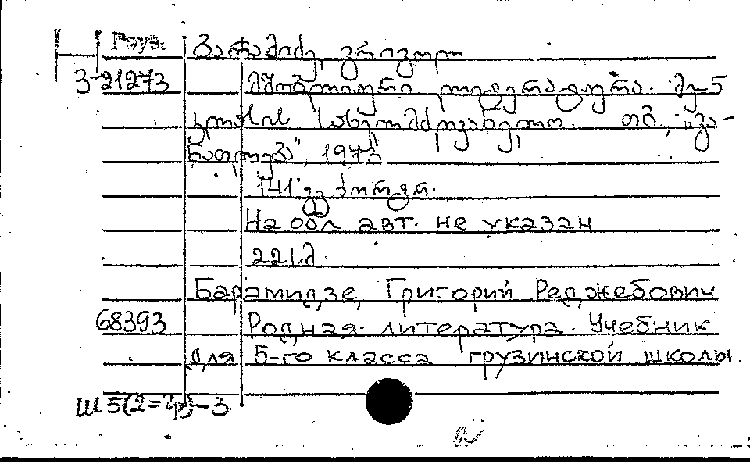 Груз.
ბარამიძე, გრიგოლ
3-21273 მშობლიური ლიტერატურა. მე-5
კლასის სახელმძღვანელო. თბ., „გა-
ნათლება", 1973
141 გვ.
На обл авт. не указан
22 I.
Барамидзе, Григорий Реджебович
68393 Родная литература. Учебник
для 5-го класса грузинской школы.
Ш5(2=Гр)-3